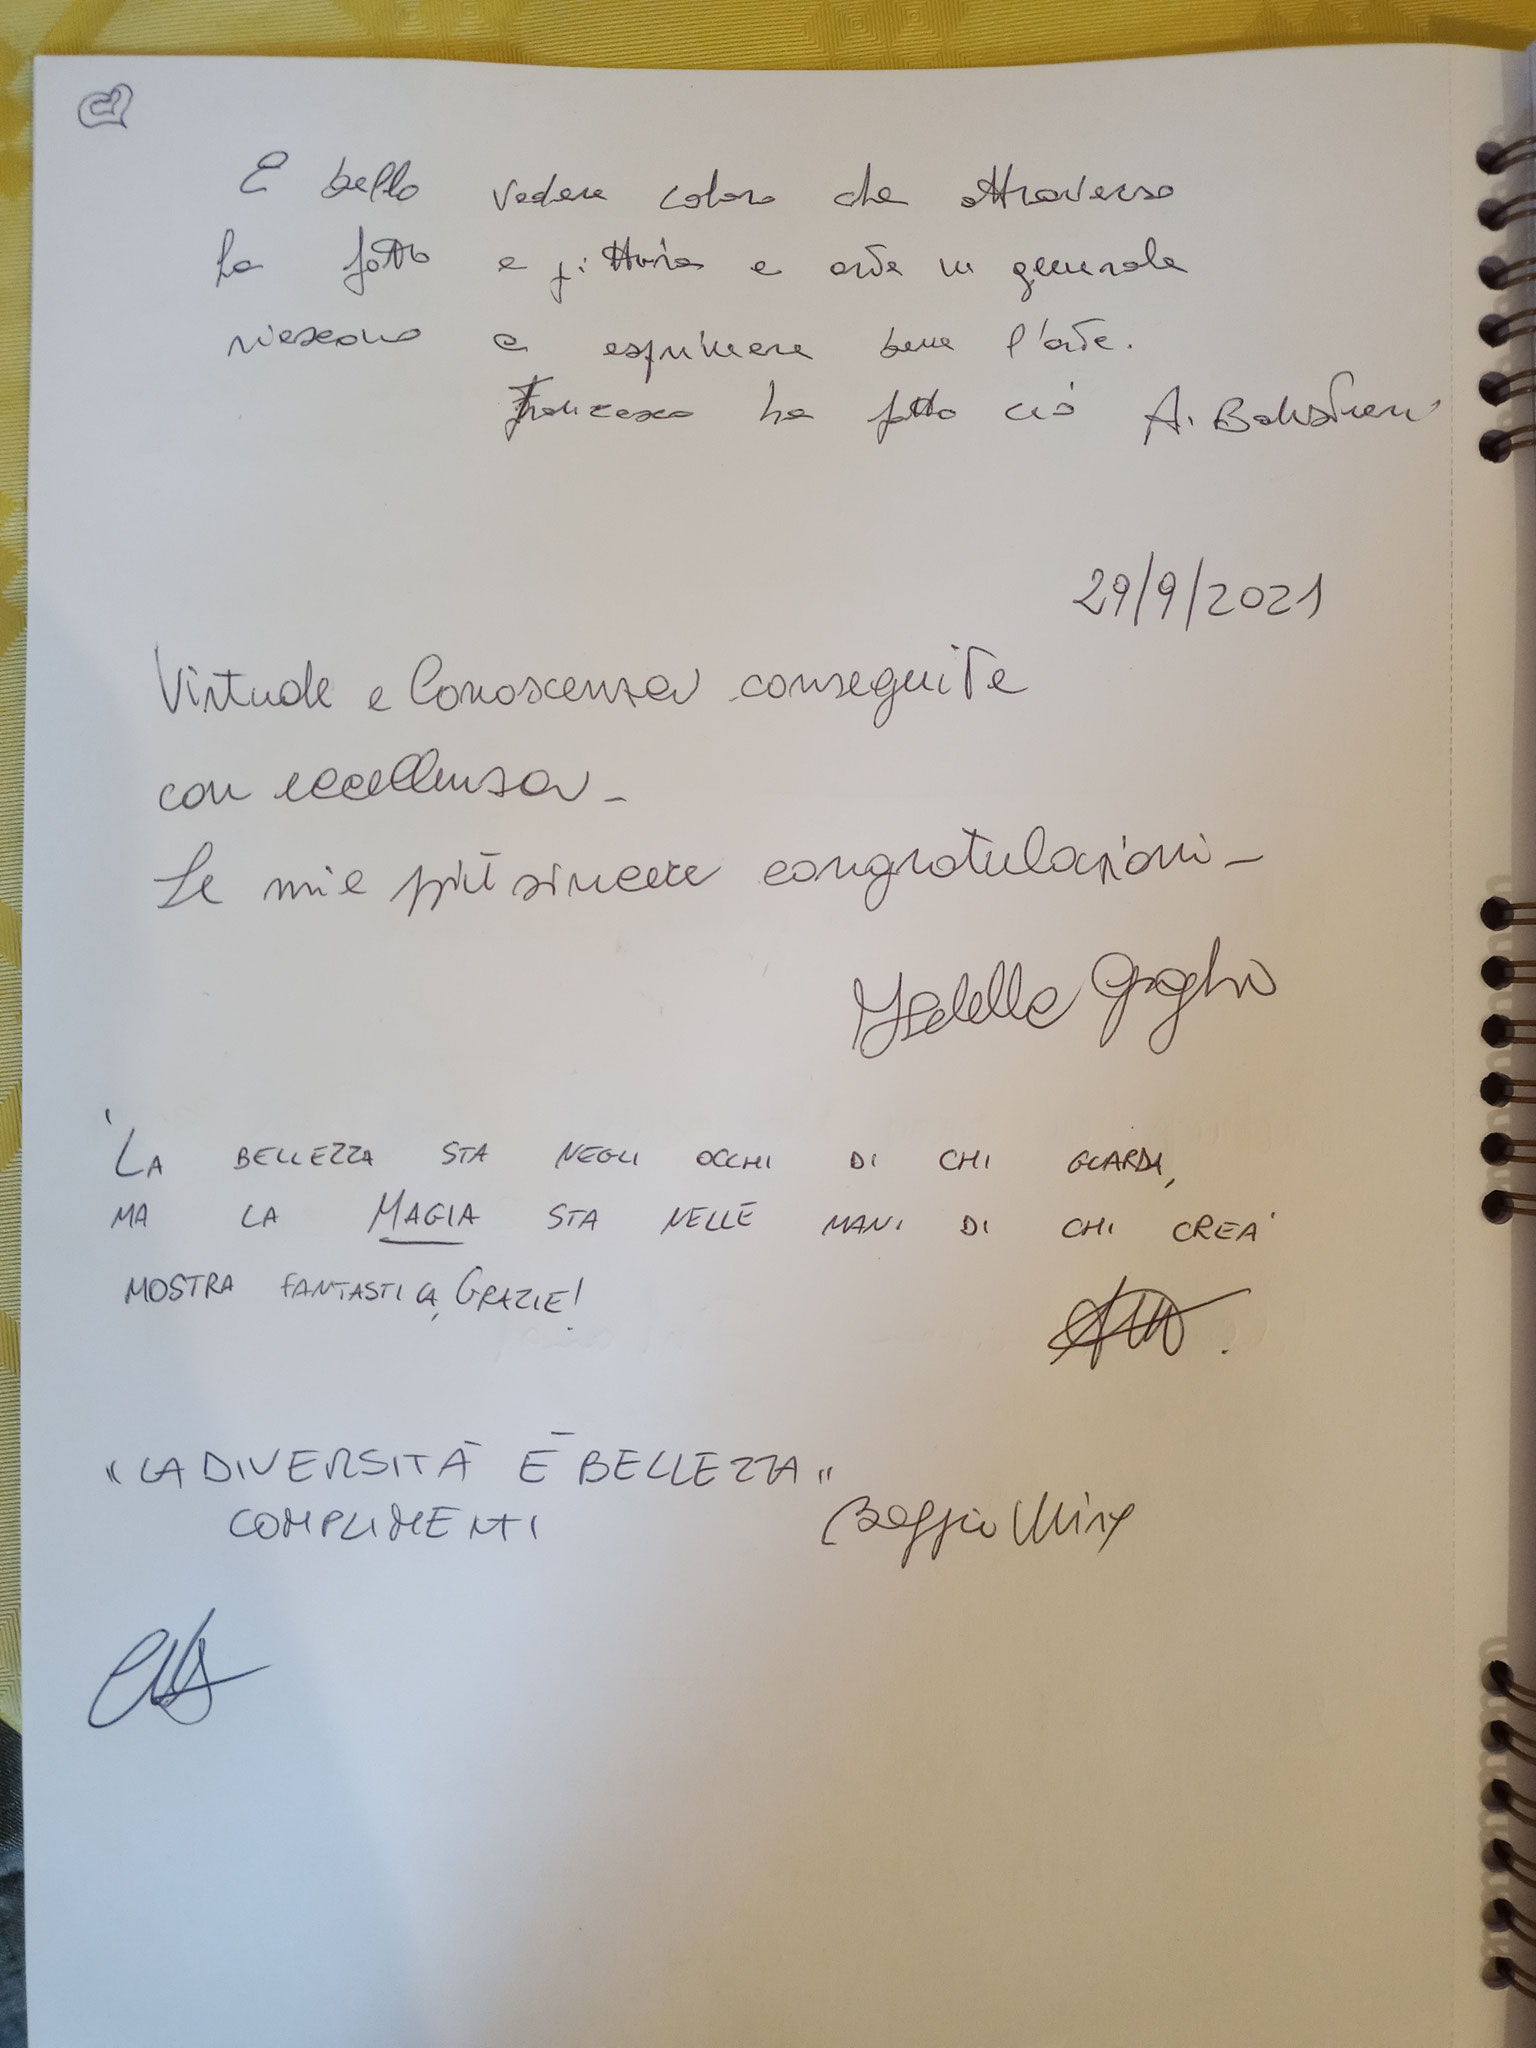 E bello vedere coloro che attraverso
la fotto e pittura e arte in generale
riescono a esprimere bene l'arte.
Francesco ha fatto ciò A.
29/9/2021
Virtude e Conoscenza conseguite
con eccellenza -
Le mie più sincere congratulazioni -
"LA BELLEZZA STA NEGLI OCCHI DI CHI GUARDA,
MA LA MAGIA STA NELLE MANI DI CHI CREA"
MOSTRA FANTASTICA, GRAZIE!
"LA DIVERSITÀ È BELLEZZA"
COMPLIMENTI